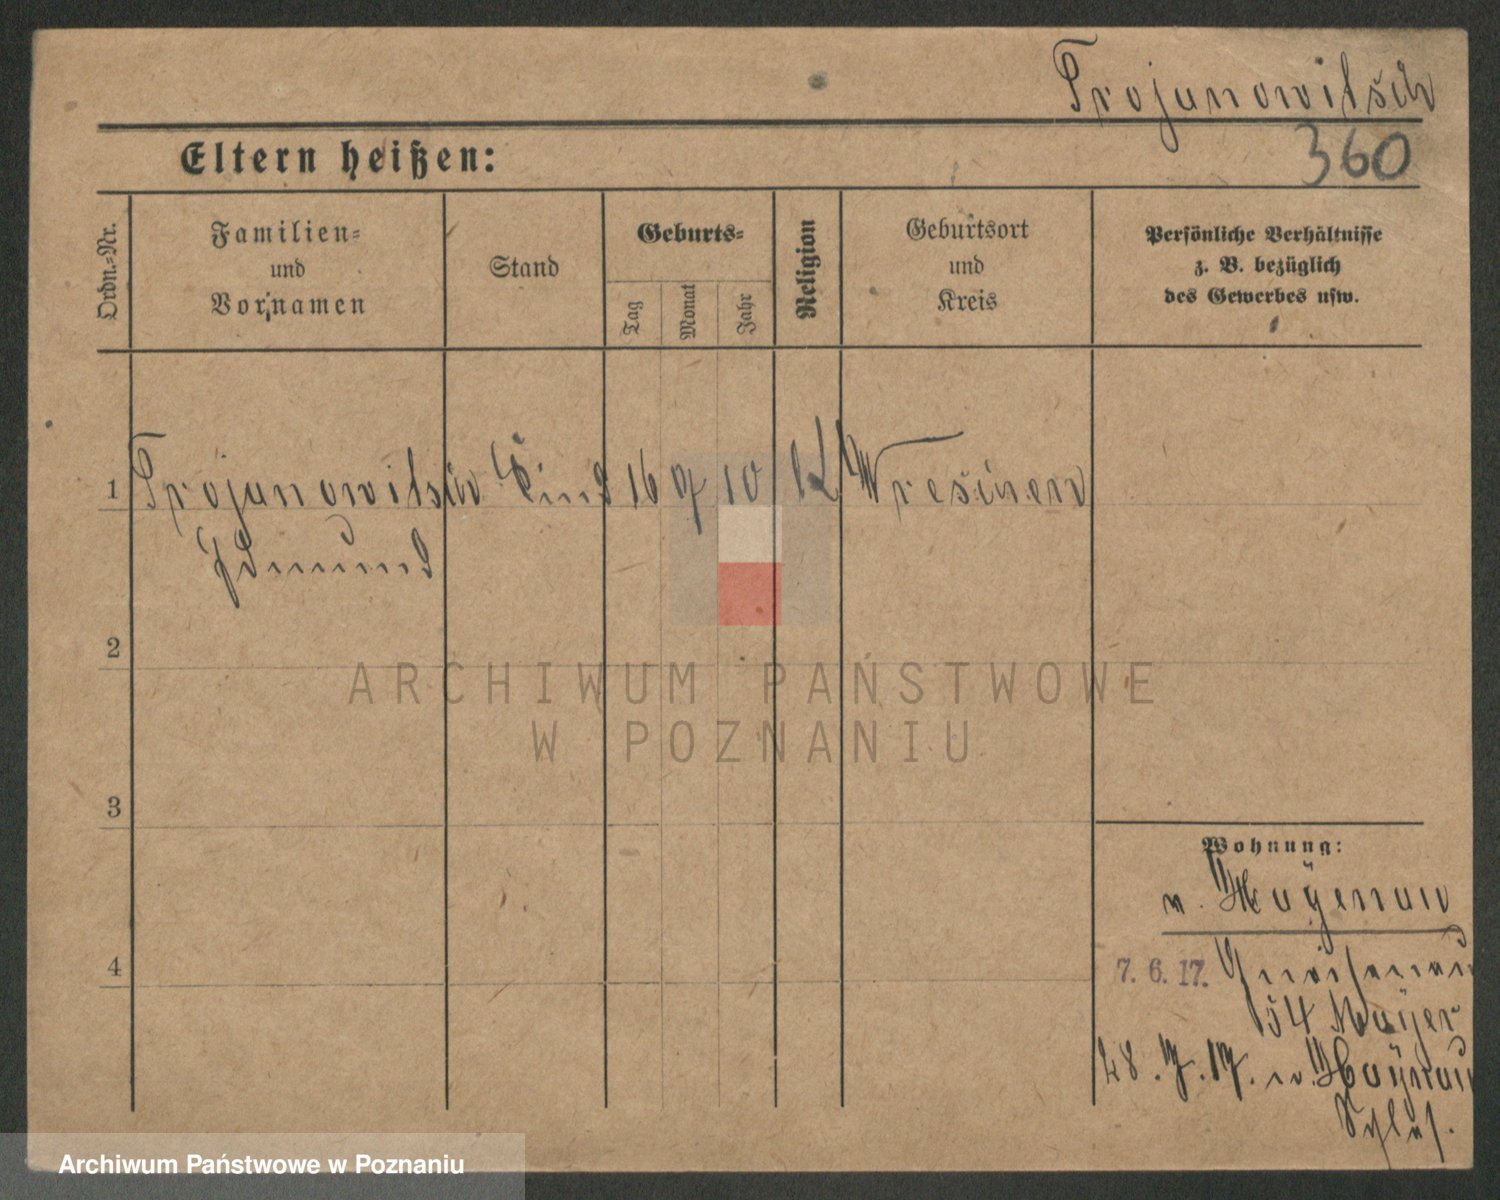 Trojanowitsch
360
Eltern heißen:
Ordn.-Nr.
Familien-
und
Vornamen
Stand
Geburts-
Tag
Monat
Jahr
Religion
Geburtsort
und
Kreis
Persönliche Verhältnisse
z. B. bezüglich
des Gewerbes usw.
1 Trojanowitsch Kind 16 9 10 K Wreschen
Edmund
2
3
4
Wohnung:
n. Haynau
7. 6. 17. Gneisenau
54 Mayer
28. 7. 17. n. Haynau
Schles.
ARCHIWUM PAŃSTWOWE
W POZNANIU
Archiwum Państwowe w Poznaniu